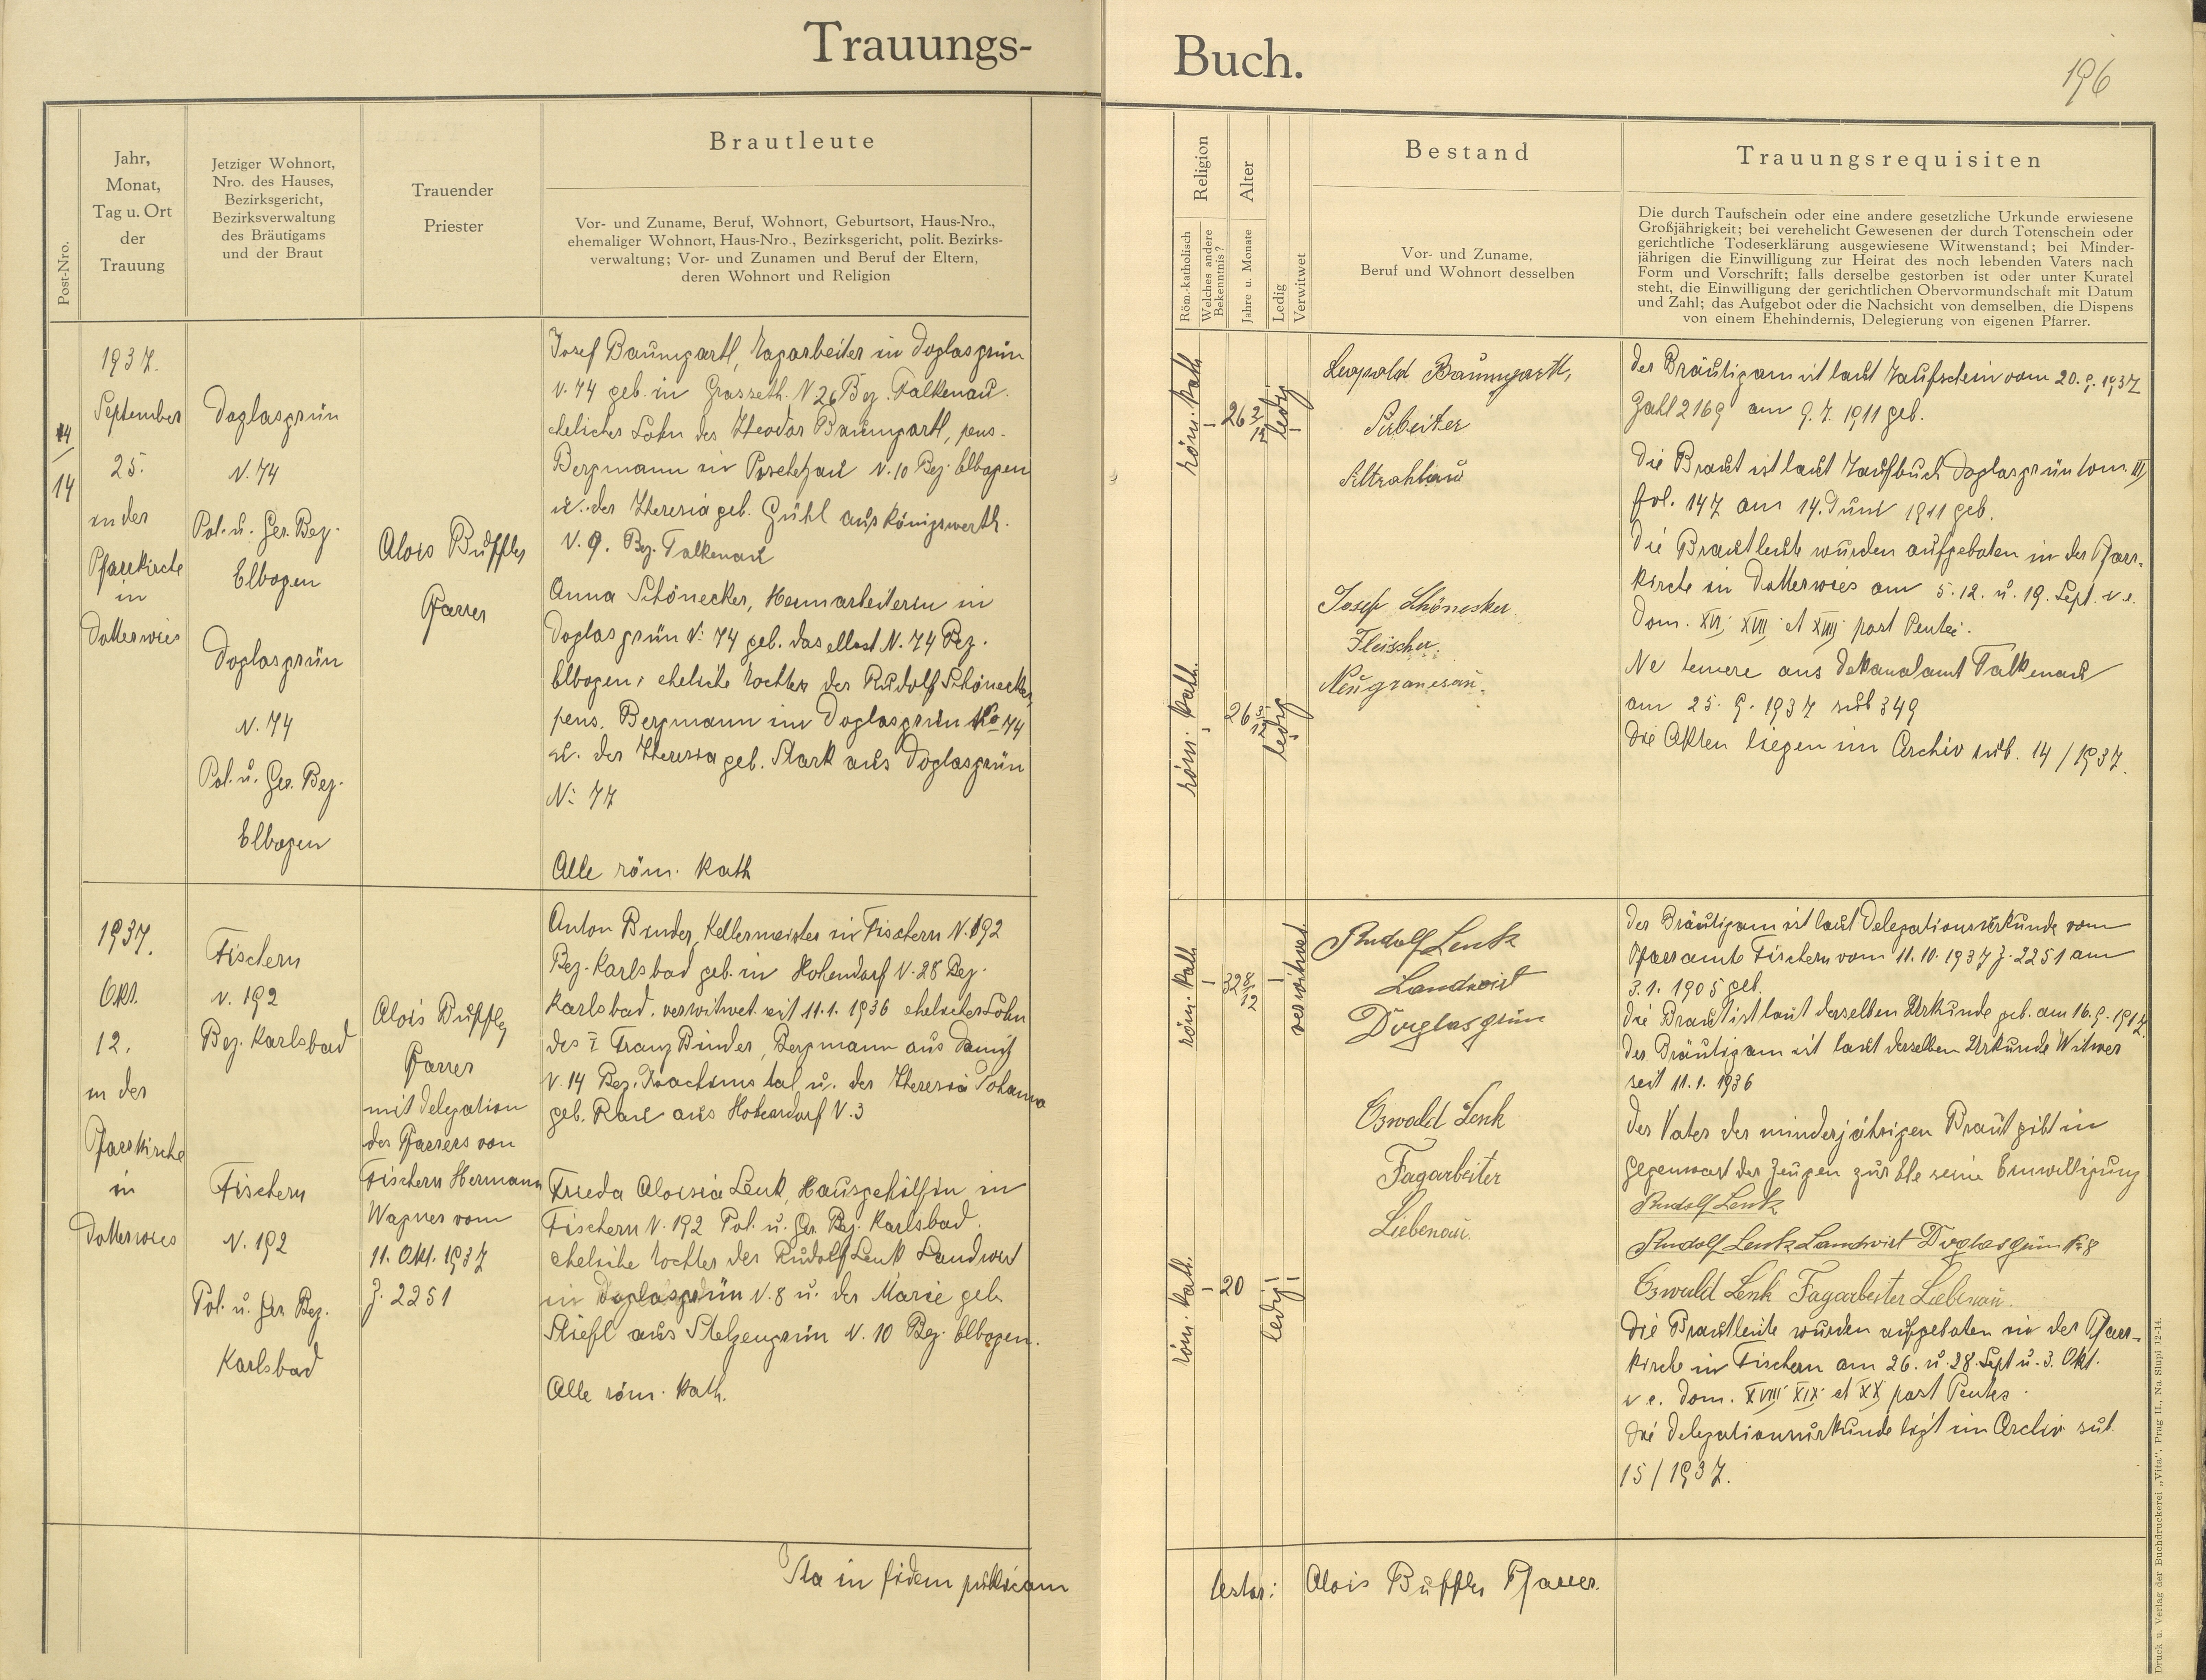 Trauungs-
Buch.
196
Post-Nro.
Jahr,
Monat,
Tag u. Ort
der
Trauung
Jetziger Wohnort,
Nro. des Hauses,
Bezirksgericht,
Bezirksverwaltung
des Bräutigams
und der Braut
Trauender
Priester
Brautleute
Vor- und Zuname, Beruf, Wohnort, Geburtsort, Haus-Nro.,
ehemaliger Wohnort, Haus-Nro., Bezirksgericht, polit. Bezirks-
verwaltung; Vor- und Zunamen und Beruf der Eltern,
deren Wohnort und Religion
Religion
Röm.-katholisch
Welches andere
Bekenntnis?
Alter
Jahre u. Monate
Ledig
Verwitwet
Bestand
Vor- und Zuname,
Beruf und Wohnort desselben
Trauungsrequisiten
Die durch Taufschein oder eine andere gesetzliche Urkunde erwiesene
Großjährigkeit; bei verehelicht Gewesenen der durch Totenschein oder
gerichtliche Todeserklärung ausgewiesene Witwenstand; bei Minder-
jährigen die Einwilligung zur Heirat des noch lebenden Vaters nach
Form und Vorschrift; falls derselbe gestorben ist oder unter Kuratel
steht, die Einwilligung der gerichtlichen Obervormundschaft mit Datum
und Zahl; das Aufgebot oder die Nachsicht von demselben, die Dispens
von einem Ehehindernis, Delegierung von eigenen Pfarrer.
14
14
1937.
September
25.
in der
Pfarrkirche
in
Dotterwies
Doglasgrün
N. 74
Pol. u. Ger. Bez.
Elbogen
Doglasgrün
N. 74
Pol. u. Ger. Bez.
Elbogen
Alois Buffler
Pfarrer
Josef Baumgartl, Tagarbeiter in Doglasgrün
N. 74 geb. in Grasseth. N 26 Bez. Falkenau.
ehelicher Sohn des Theodor Baumgartl, pens.
Bergmann in N. 10 Bez. Elbogen
u. der Theresia geb. Gühl aus Königswerth.
N. 9. Bez. Falkenau
Anna Schönecker, Heimarbeiterin in
Doglasgrün N: 74 geb. daselbst N. 74 Bez.
Elbogen, eheliche Tochter des Rudolf Schönecker,
pens. Bergmann in Doglasgrün No 74
u. der Theresia geb. Stark aus Doglasgrün
N: 77
Alle röm. kath
röm. kath
26 2/12
ledig
röm. kath.
26 3/12
ledig
Leopold Baumgartl,
Arbeiter
Altrohlau
Josef Schönecker.
Fleischer.
Der Bräutigam ist laut Taufschein vom 20. 9. 1937
Zahl 2169 am 9. 7. 1911 geb.
Die Braut ist laut Taufbuch Doglasgrün tom. III
fol. 147 am 14. Juni 1911 geb.
Die Brautleute wurden aufgeboten in der Pfarr-
kirche in Dotterwies am 5. 12. u. 19. Sept. i. e.
Dom. XVI, XVII et XVIII post Pentec.
Ne temere aus Dekanalamt Falkenau
am 25. 9. 1937 sub 349
Die Akten liegen im Archiv sub. 14 / 1937.
1937.
Okt.
12.
in der
Pfarrkirche
in
Dotterwies
Fischern
N. 192
Bez. Karlsbad
Fischern
N. 192
Pol. u. Ger Bez.
Karlsbad
Alois Buffler
Pfarrer
mit Delegation
des Pfarrers von
Fischern Hermann
Wagner vom
11. Okt. 1937
Z. 2251
Anton Binder, Kellermeister in Fischern N. 192
Bez. Karlsbad geb. in Hohendorf N. 28 Bez.
Karlsbad. verwitwet seit 11. 1. 1936 ehelicher Sohn
des Franz Binder, Bergmann aus Damitz
N. 14 Bez. Joachimstal u. der Theresia Johanna
geb. aus Hohendorf N. 3
Frieda Aloisia Lenk, Hausgehilfin in
Fischern N. 192 Pol. u. Ger. Bez. Karlsbad.
eheliche Tochter des Rudolf Lenk Landwirt
in Doglasgrün N. 8 u. der Marie geb.
Stiefl aus Stelzengrün N. 10 Bez. Elbogen.
Alle röm. kath.
röm. kath
32 8/12
verwitwet
röm. kath.
20
ledig
Rudolf Lenk
Landwirt
Douglasgrün
Oswald Lenk
Tagarbeiter
Liebenau.
Der Bräutigam ist laut Delegationsurkunde vom
Pfarramte Fischern vom 11. 10. 1937 Z. 2251 am
3. 1. 1905 geb.
Die Braut ist laut derselben Urkunde geb. am 16. 9. 1917.
Der Bräutigam ist laut derselben Urkunde Witwer
seit 11. 1. 1936
Der Vater der minderjährigen Braut gibt in
Gegenwart der Zeugen zur Ehe seine Einwilligung
Rudolf Lenk
Rudolf Lenk Landwirt Doglasgrün Nr 8
Oswald Lenk Tagarbeiter Liebenau.
Die Brautleute wurden aufgeboten in der Pfarr-
kirche in Fischern am 26. u. 28. Sept u. 3. Okt.
i. e. Dom. XVIII XIX et XX post Pentec.
Die Delegationsurkunde liegt im Archiv sub
15 / 1937.
Ita in fidem publicam
testor: Alois Buffler Pfarrer.
Druck u. Verlag der Buchdruckerei „Vita“, Prag II., Na Slupi 12-14.